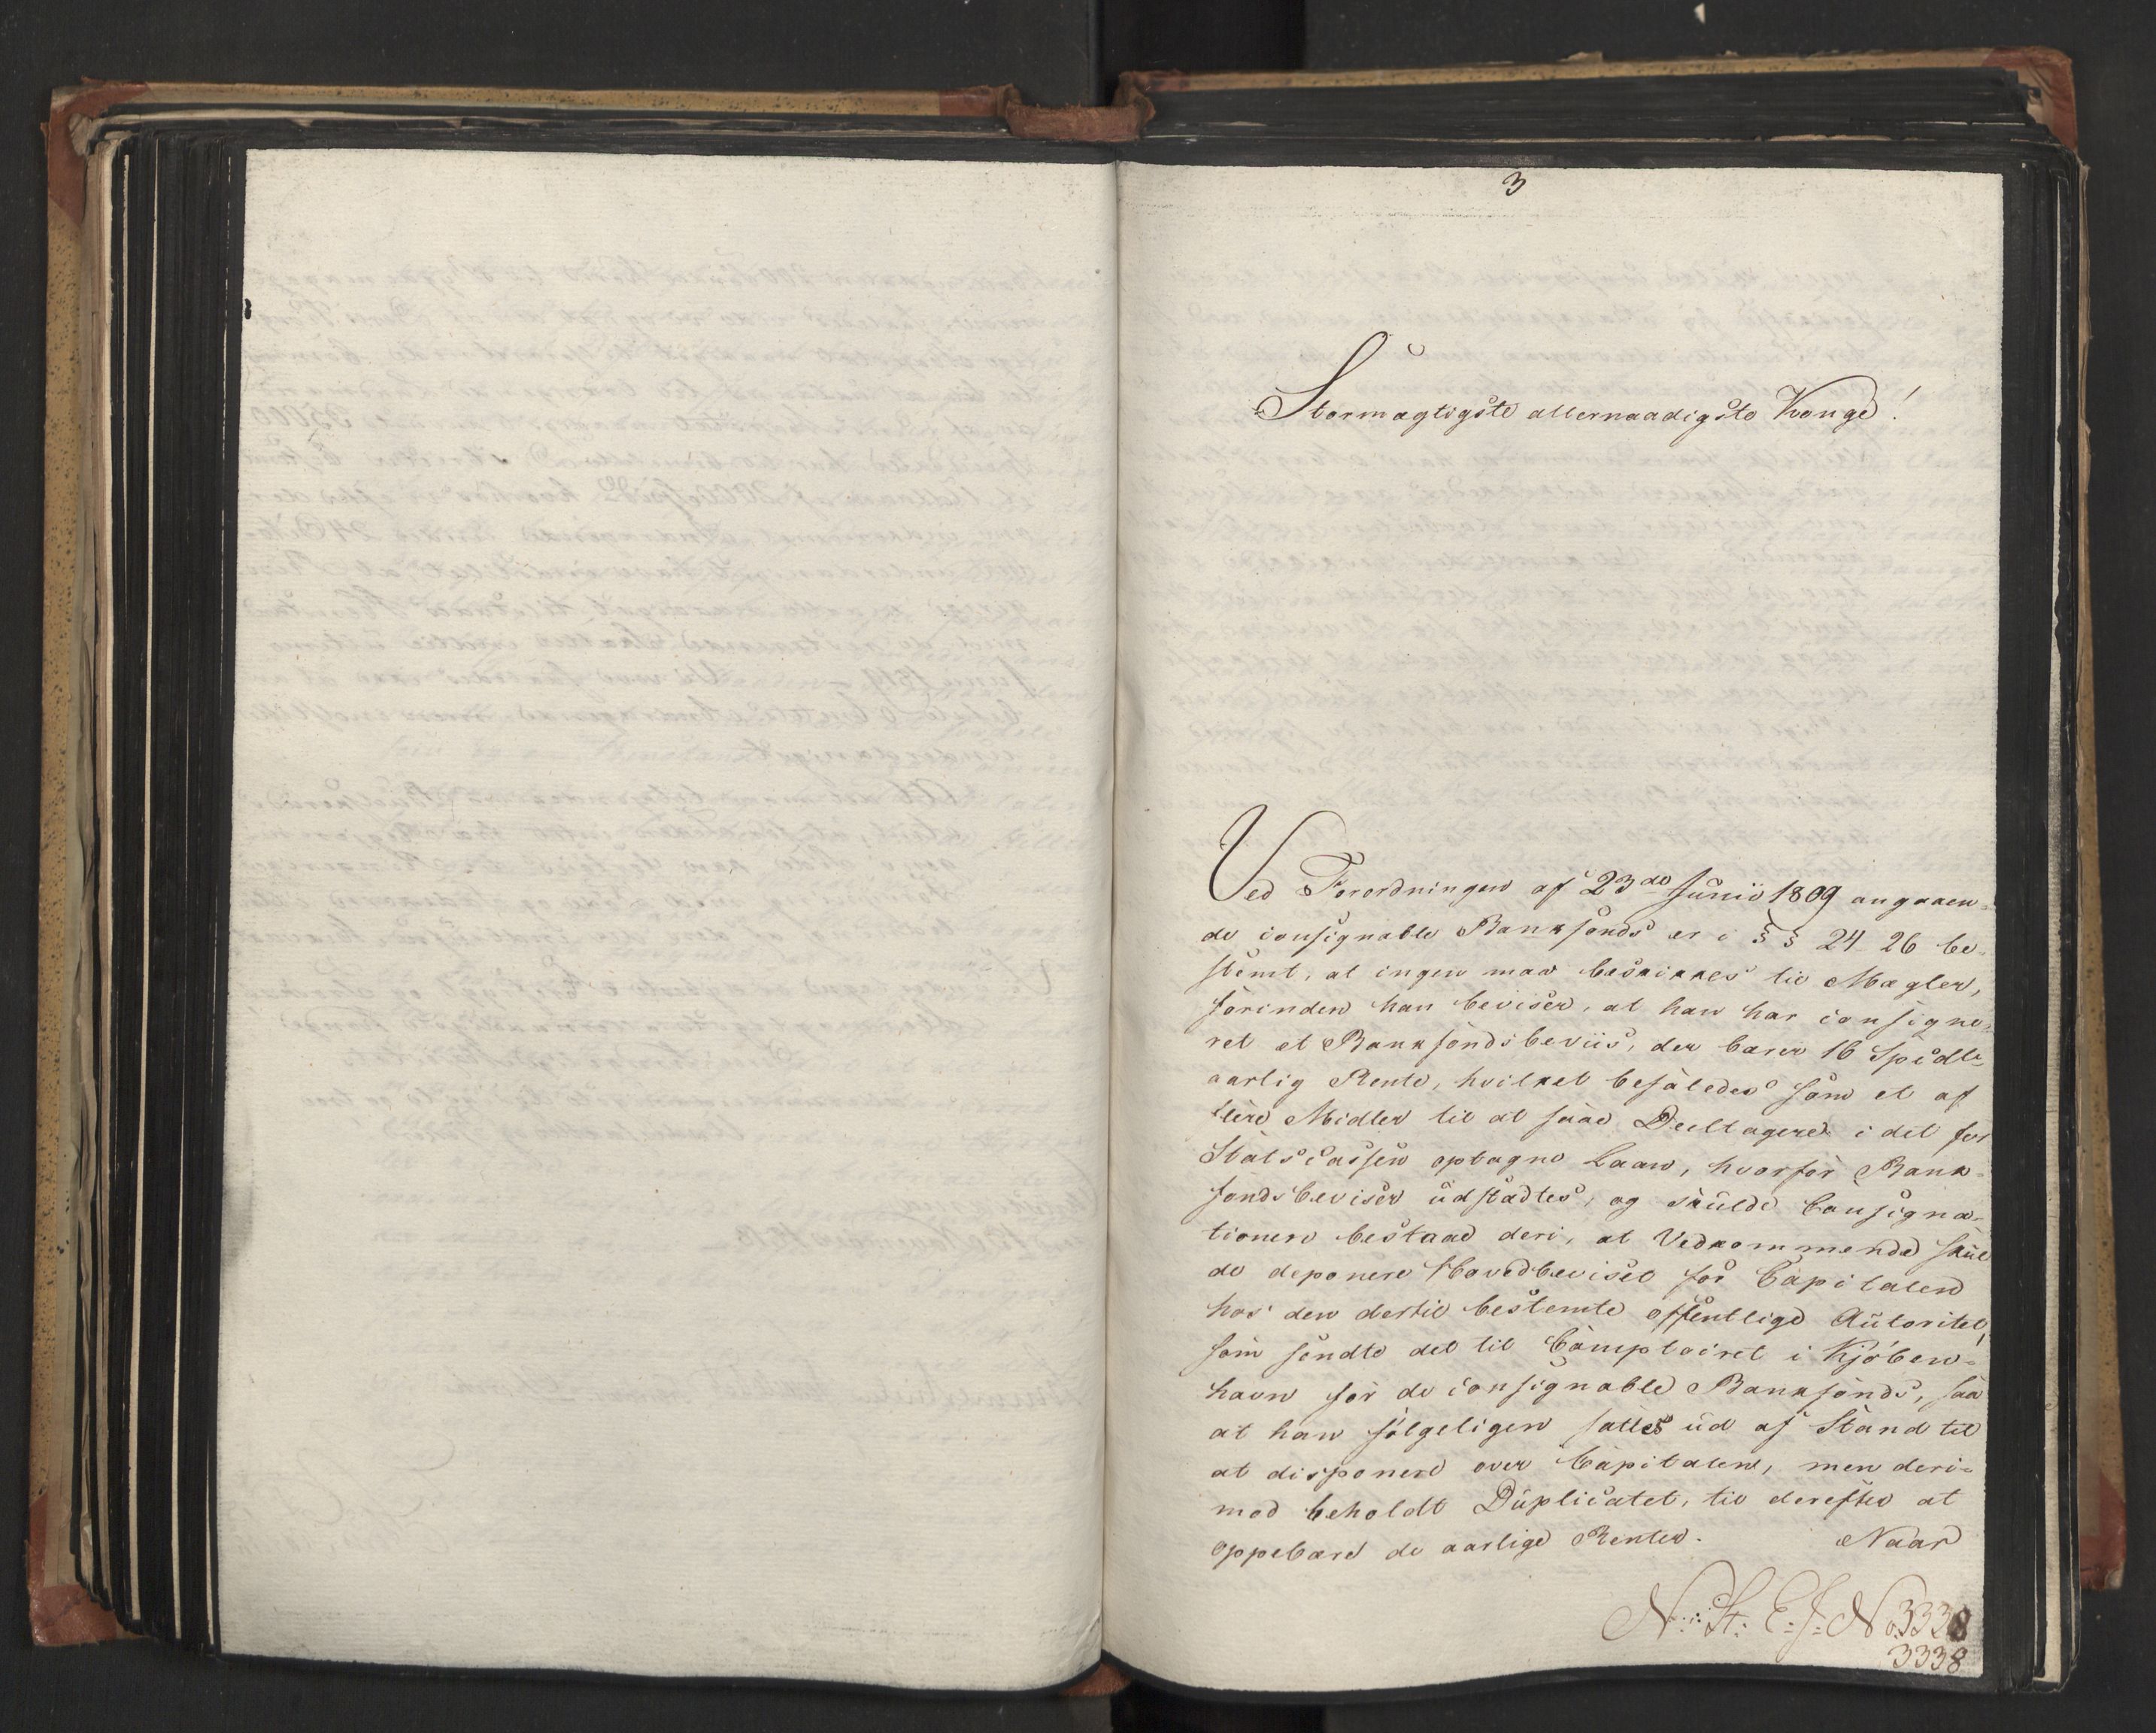 3
Stormægtigste allernaadigste Konge!
Ved Forordningen af 23de Junii 1809 angaaen-
de consignable Bankfonds er i §§ 24 26 be-
stemt, at ingen maa beskikkes til Mægler,
førinden han beviser, at han har consigne-
ret et Bankfondsbeviis, der bærer 16 Spidlr
aarlig Rente, hvilket befaledes som et af
flere Midler til at faae Deeltagere i det for
Statscassen optagne Laan, hvorfor Bank-
fondsbeviser udstædtes, og skulde Consigna-
tionen bestaae deri, at Vedkommende skul
de deponere Hovedbeviset for Capitalen
hos den dertil bestemte offentlige Autoritet,
som sendte det til Comptoiret i Kjøben-
havn for de consignable Bankfonds, saa
at han følgeligen sattes ud af Stand til
at disponere over Capitalen, men deri-
mod beholdt Duplicatet, til derefter at
oppebære de aarlige Renter. Naar
N: St: E: J: No 3338
3338